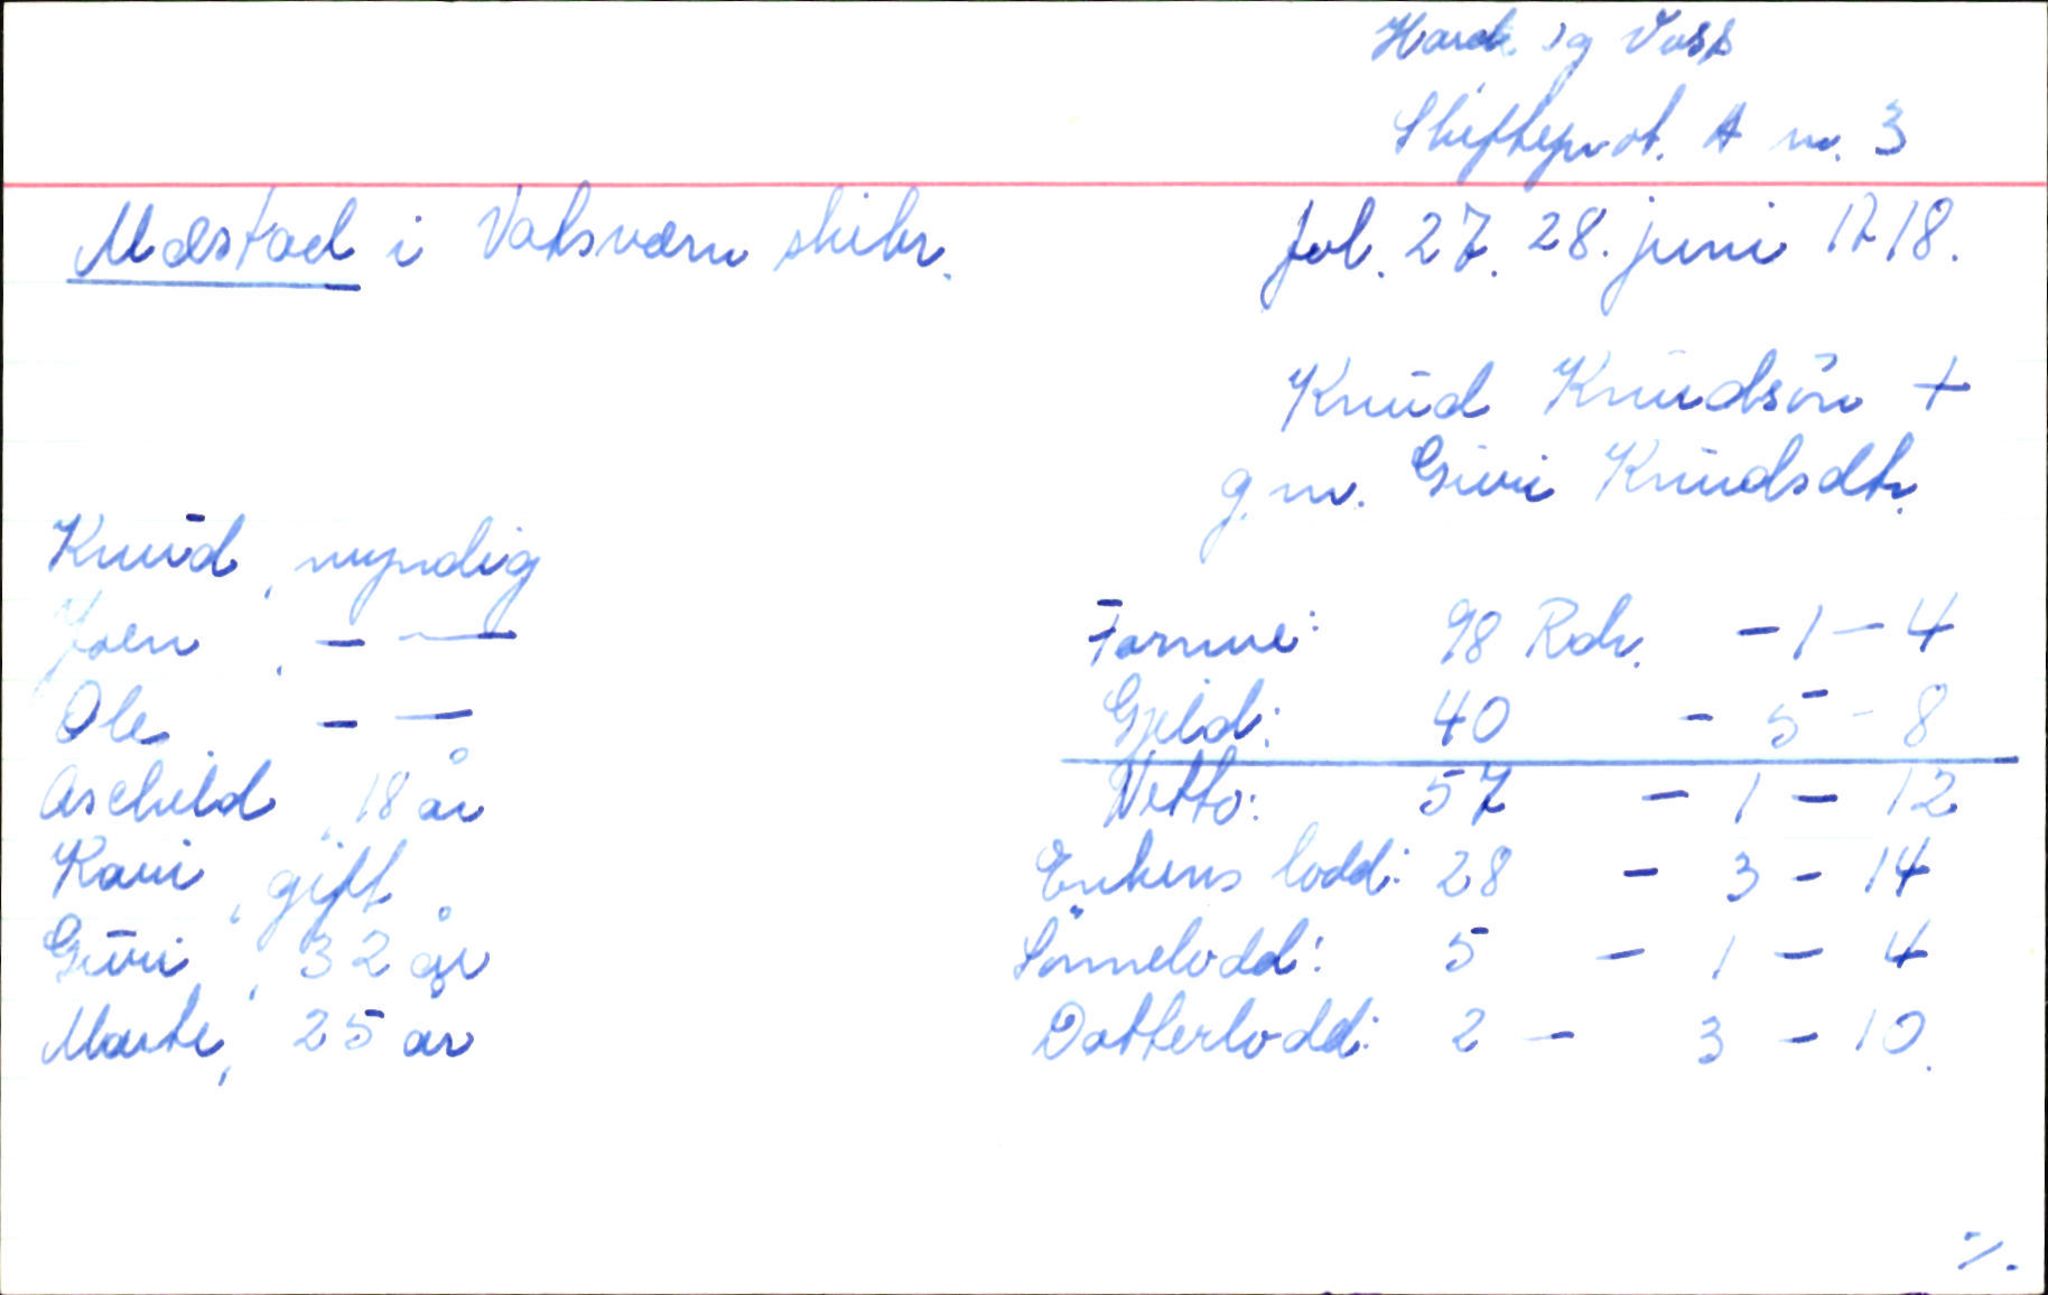 Hard. og Voss
Skifteprot. A nr. 3
Mæstad i Vatsværn skibr.
fol. 27. 28. juni 1718.
Knūd Knūdsön +
g.m. Gūri Knūdsdtr.
Knūd, myndig
Joen, - —
Ole - —
Aschield, 18 år
Kari, gift
Gūri, 32 år
Marte, 25 år
Formue: 98 Rdr. - 1 - 4
Gjeld: 40 - 5 - 8
Netto: 57 - 1 - 12
Enkens lodd: 28 - 3 - 14
Sönnelodd: 5 - 1 - 4
Datterlodd: 2 - 3 - 10.
./.